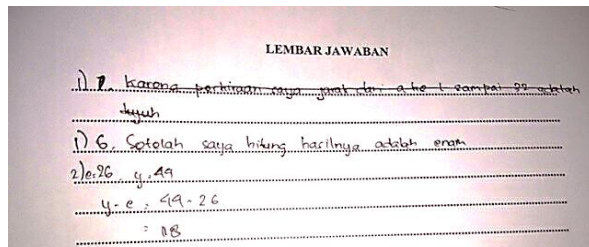 LEMBAR JAWABAN
1) 7. Karena perkiraan saya jarak dari a ke l sampai 32 adalah
tujuh
1) 6. Setelah saya hitung hasilnya adalah enam
2) e=26, y=49
y - e = 49 - 26
= 18